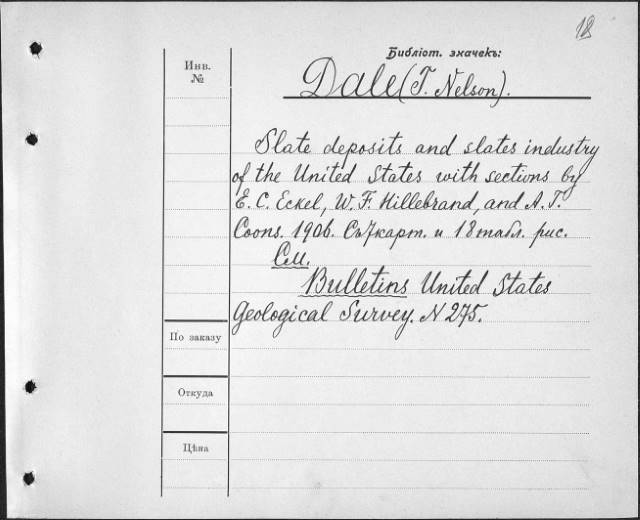 18
Библіот. значекъ:
Инв.
№
Dale (T. Nelson).
Slate deposits and slates industry
of the United States with sections by
E. C. Eckel, W. F. Hillebrand, and A. T.
Coons. 1906. Съ 7 карт. и 18 табл. рис.
См.
Bulletins United States
Geological Survey. N 275.
По заказу
Откуда
Цѣна